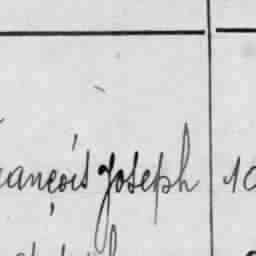 rançois Joseph 10